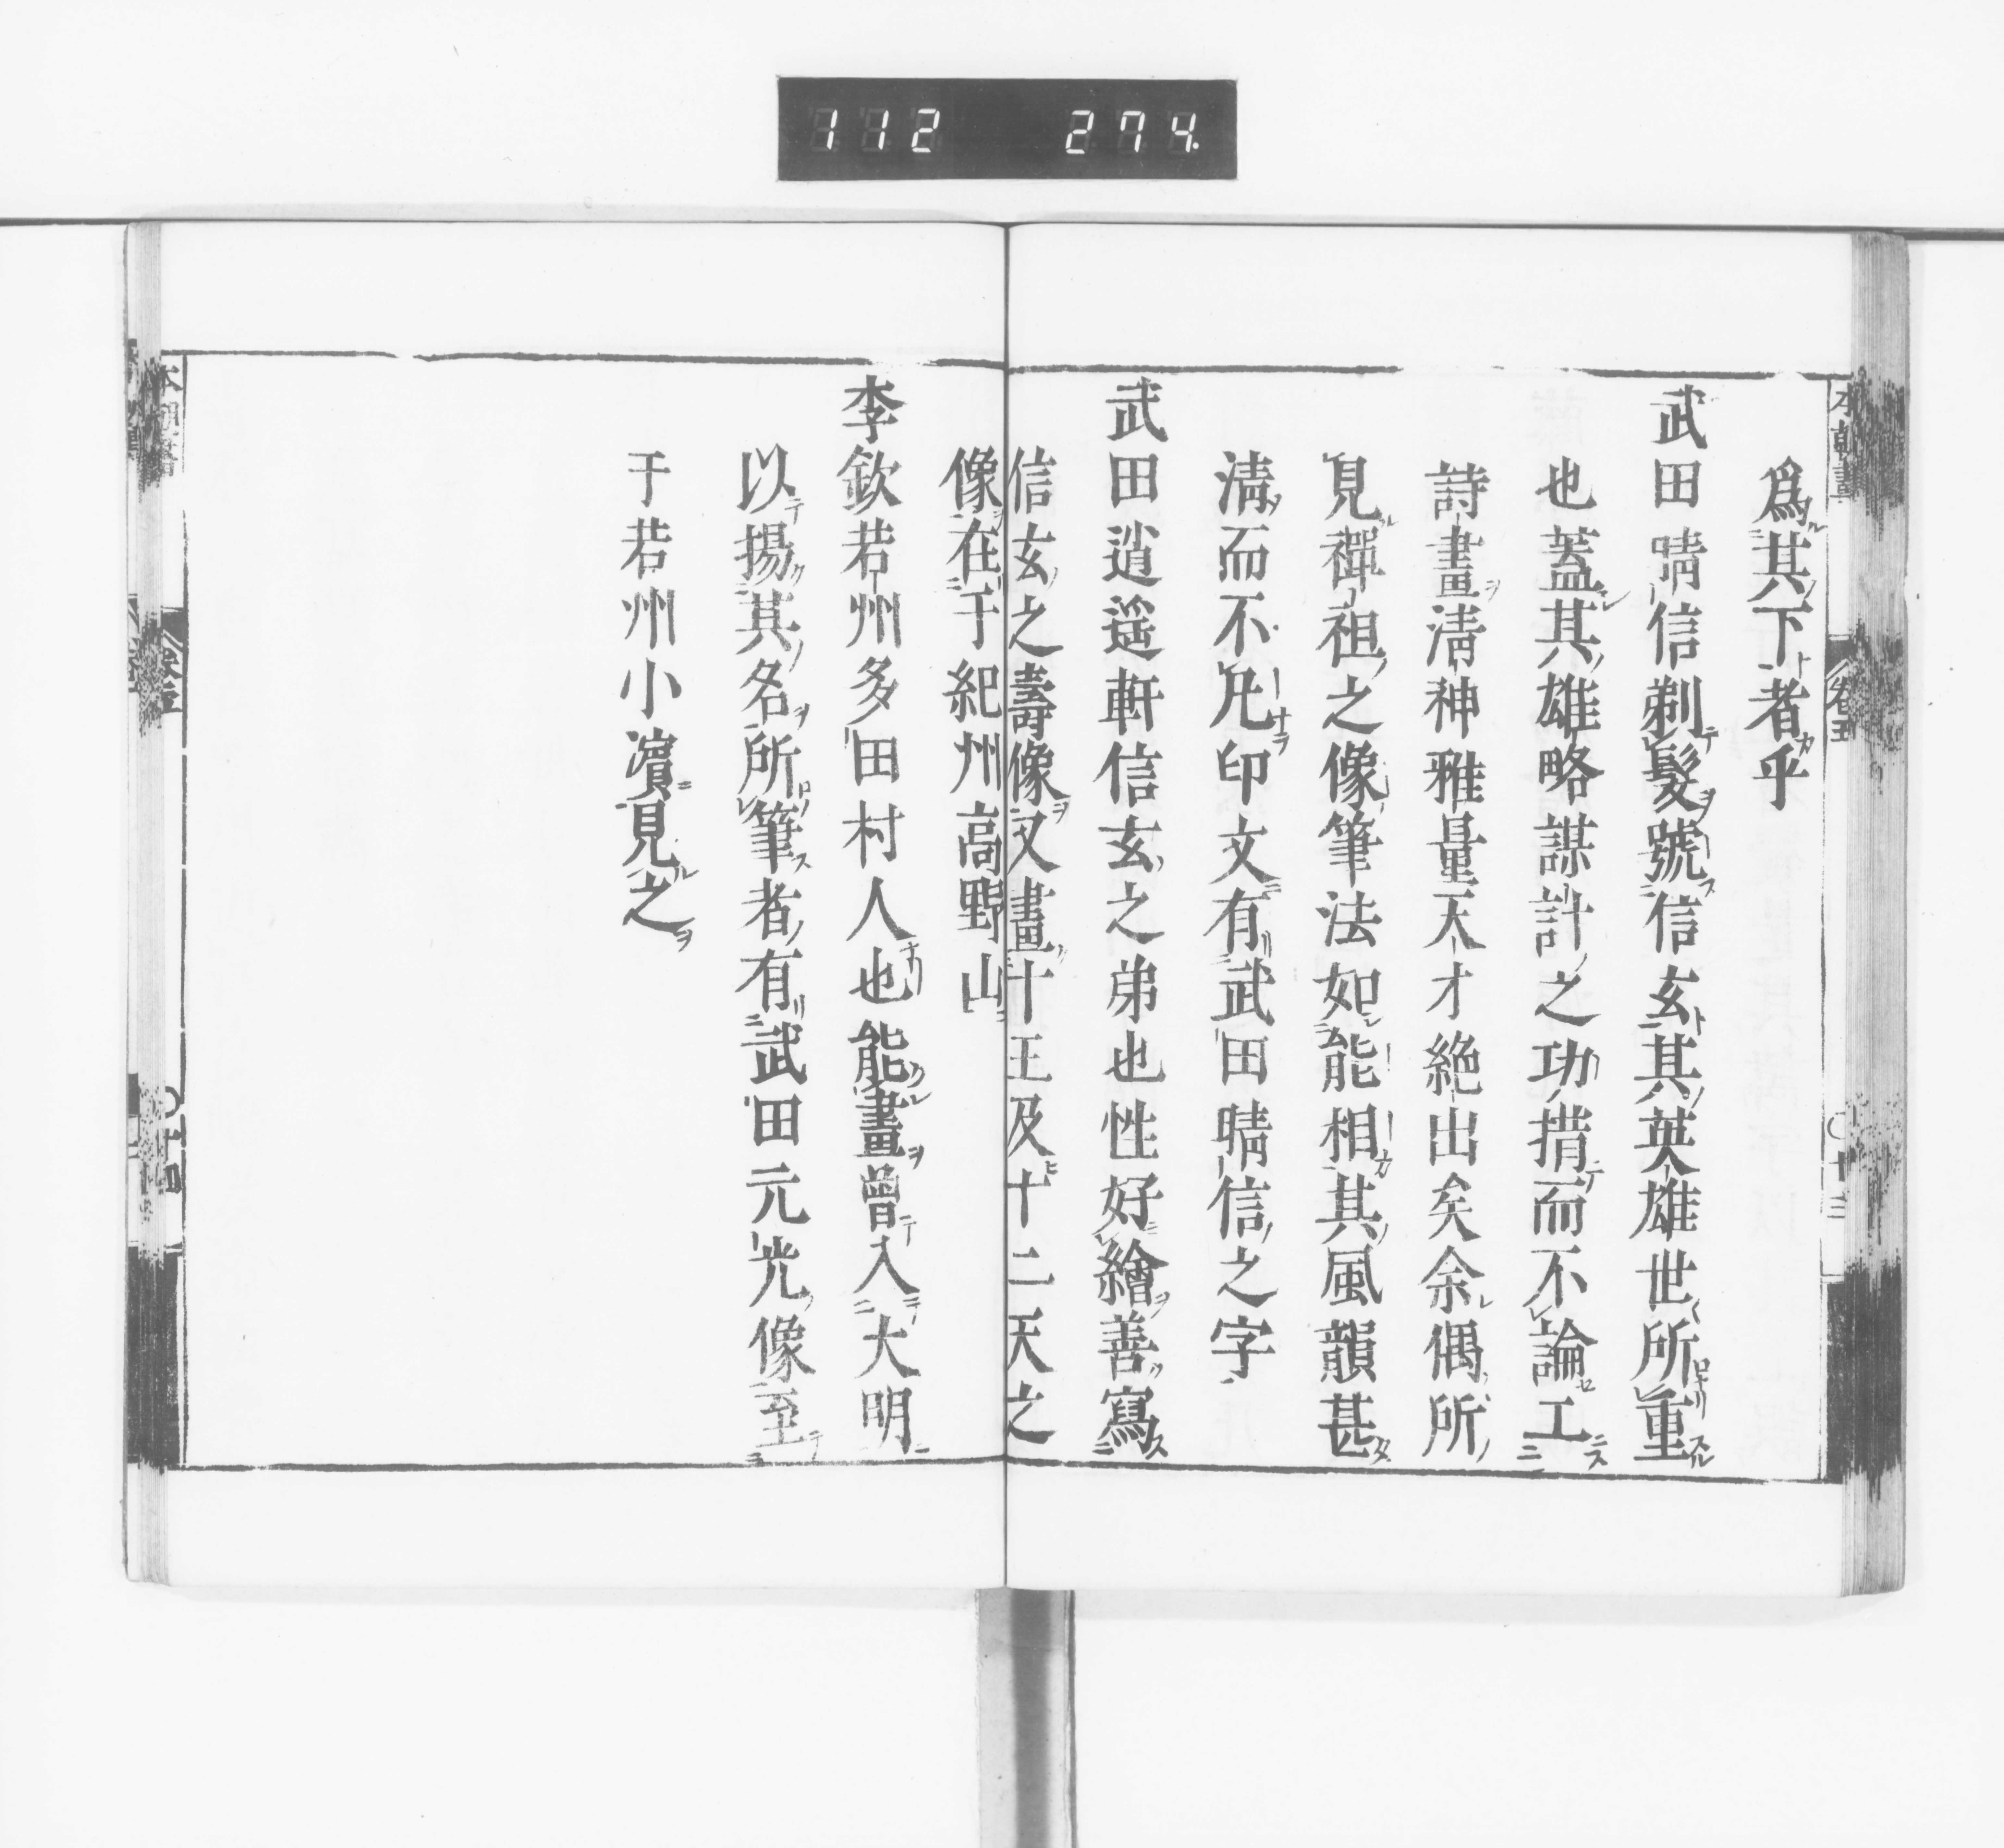 112 274.
爲其下者乎
武田晴信剃髮號信玄其英雄世所重
也蓋其雄略謀計之功措而不論工
詩畫淸神雅量天才絶出矣余偶所
見禪祖之像筆法如能相其風韻甚
淸而不凡印文有武田晴信之字
武田逍遥軒信玄之弟也性好繪善寫
信玄之壽像又畫十王及十二天之
像在于紀州高野山
李欽若州多田村人也能畫曾入大明
以揚其名所筆者有武田元光像至
于若州小濵見之